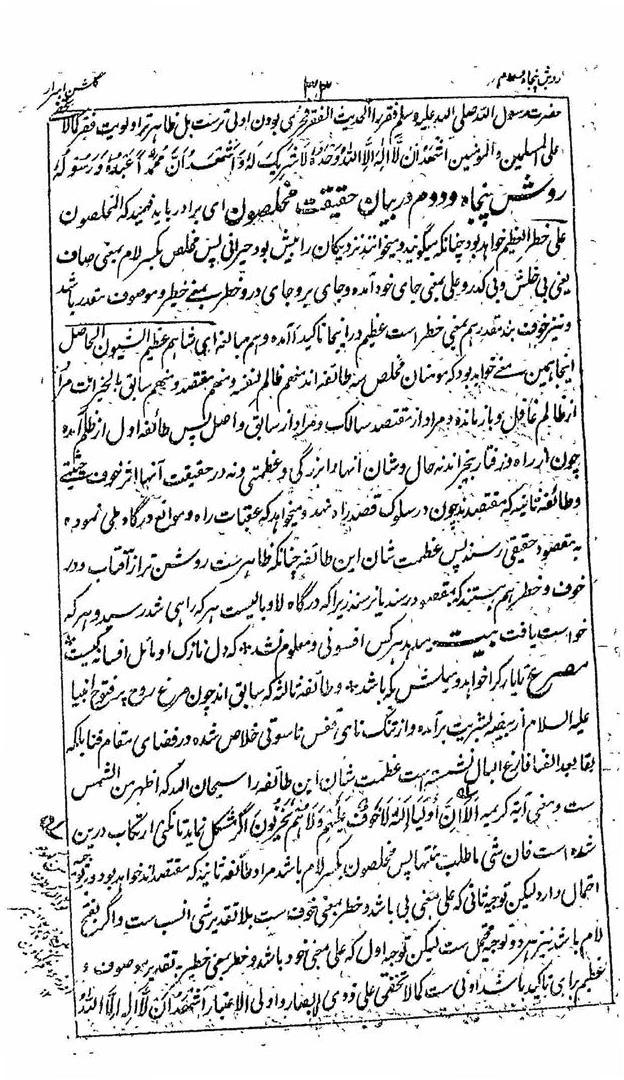 روش پنجاه و دوم
۳۳
گلشن اسرار
حضرت رسول الله صلی الله علیه وسلم فقر بدا الحدیث الفقر فخری بودن اولی ترست بل ظاهر تر اولویت فقر کمالا یخفی
علی المسلمین والمؤمنین اشهد ان لا اله الا الله وحده لا شریک له و اشهد ان محمدا عبده و رسوله
روش پنجاه و دوم در بیان حقیقت مخلصون ای برادر باید فهمید که المخلصون
علی خطر العظیم خواهد بود چنانکه میگویند و میخوانند نزدیکان را بیش بود حیرانی پس مخلص بکسر لام بمعنی صاف
یعنی بی خلش و بی کدر و علی بمعنی جای خود آمده و جای پر و جای در و خطر بمعنی خطیر و موصوف مقدر باشد
و نیز خوف بند مقدر هم بمعنی خطر است عظیم در اینجا تاکید آمده و هم مبالغه ای شانهم عظیم الشیون الحاصل
اینجا همین معنی خواهد بود که مومنان مخلص سه طائفه اند منهم ظالم لنفسه و منهم مقتصد و منهم سابق بالخیرات مراد
از ظالم غافل و باز مانده و مراد از مقتصد سالک و مراد از سابق واصل پس طائفه اول از ظلم آمده
چون از راه و رفتار بیخبر اند نه حال و شان آنها را بزرگی و عظمتی و نه در حقیقت آنها اثر خوف حقیقی
و طائفه ثانیه که مقتصد اند چون در سلوک قصد راه نهد و میخواهد که عقبات راه و موانع درگاه طی نموده
به مقصود حقیقی رسند پس عظمت شان این طائفه چنانکه ظاهرست روشن تر از آفتاب و در
خوف و خطر هم هستند که بمقصود رسند یا نرسند زیرا که درگاه لاوبالیست هر که راهی شد رسید و هر که
خواست یافت بیت بیدلم هر کس افسونی و معلوم نشد * که دل نازک او مائل افسانه کیست *
مصرع تا یار کرا خواهد و میلش بکه باشد * و طائفه ثالثه که سابق اند چون مرغ روح پر فتوح انبیا
علیه السلام از بیضه بشریت برآمده و از تنگ نای قفس ناسوتی خلاص شده در فضای مقام فنا بلکه
بقا بعد الفنا فارغ البال نشسته است عظمت شان این طائفه را سبحان الله که اظهر من الشمس
ست و معنی آیه کریمه الا ان اولیا الله لا خوف علیهم ولا هم یحزنون اگر مشکل نماید تا نکنی ارتکاب درین
شده است فان شی ما طلب منتها پس مخلصون بکسر لام باشد مراد طائفه ثانیه که مقتصد اند خواهد بود و دو توجیه
احتمال دارد لیکن توجیه ثانی که علی بمعنی بی باشد و خطر بمعنی خوف است بلا تقدیر شی انسب ست و اگر بفتح
لام باشد نیز هر دو توجیه محتمل ست لیکن توجیه اول که علی بمعنی خود باشد و خطر بمعنی خطیر به تقدیر موصوف و
عظیم برای تاکید باشد اولی ست کما لا یخفی علی ذوی الابصار و اولی الاعتبار اشهد ان لا اله الا الله